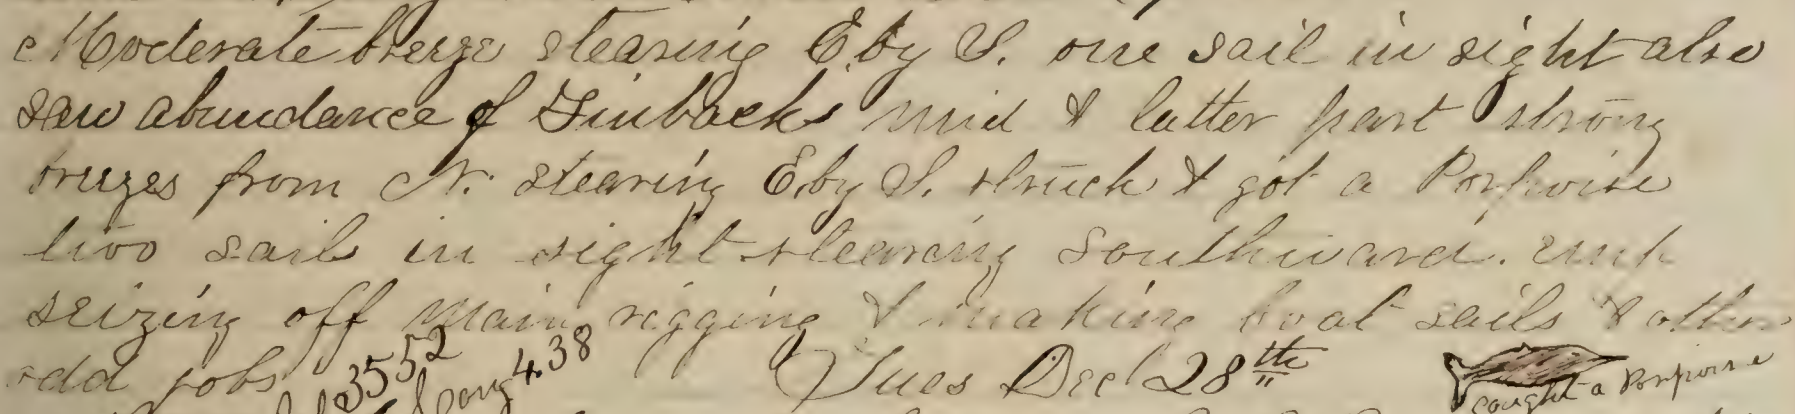 Moderate breeze stearing E. by S. one sail in sight also
saw abundance of Finbacks mid & latter part strong
breezes from N. stearing E. by S. struck & got a Porpoise
two sails in sight stearing Southward.
seizing off main rigging & making boat sails & other
odd jobs
3552 Long 4.38
Tues Dec 28th
caught a Porpoise